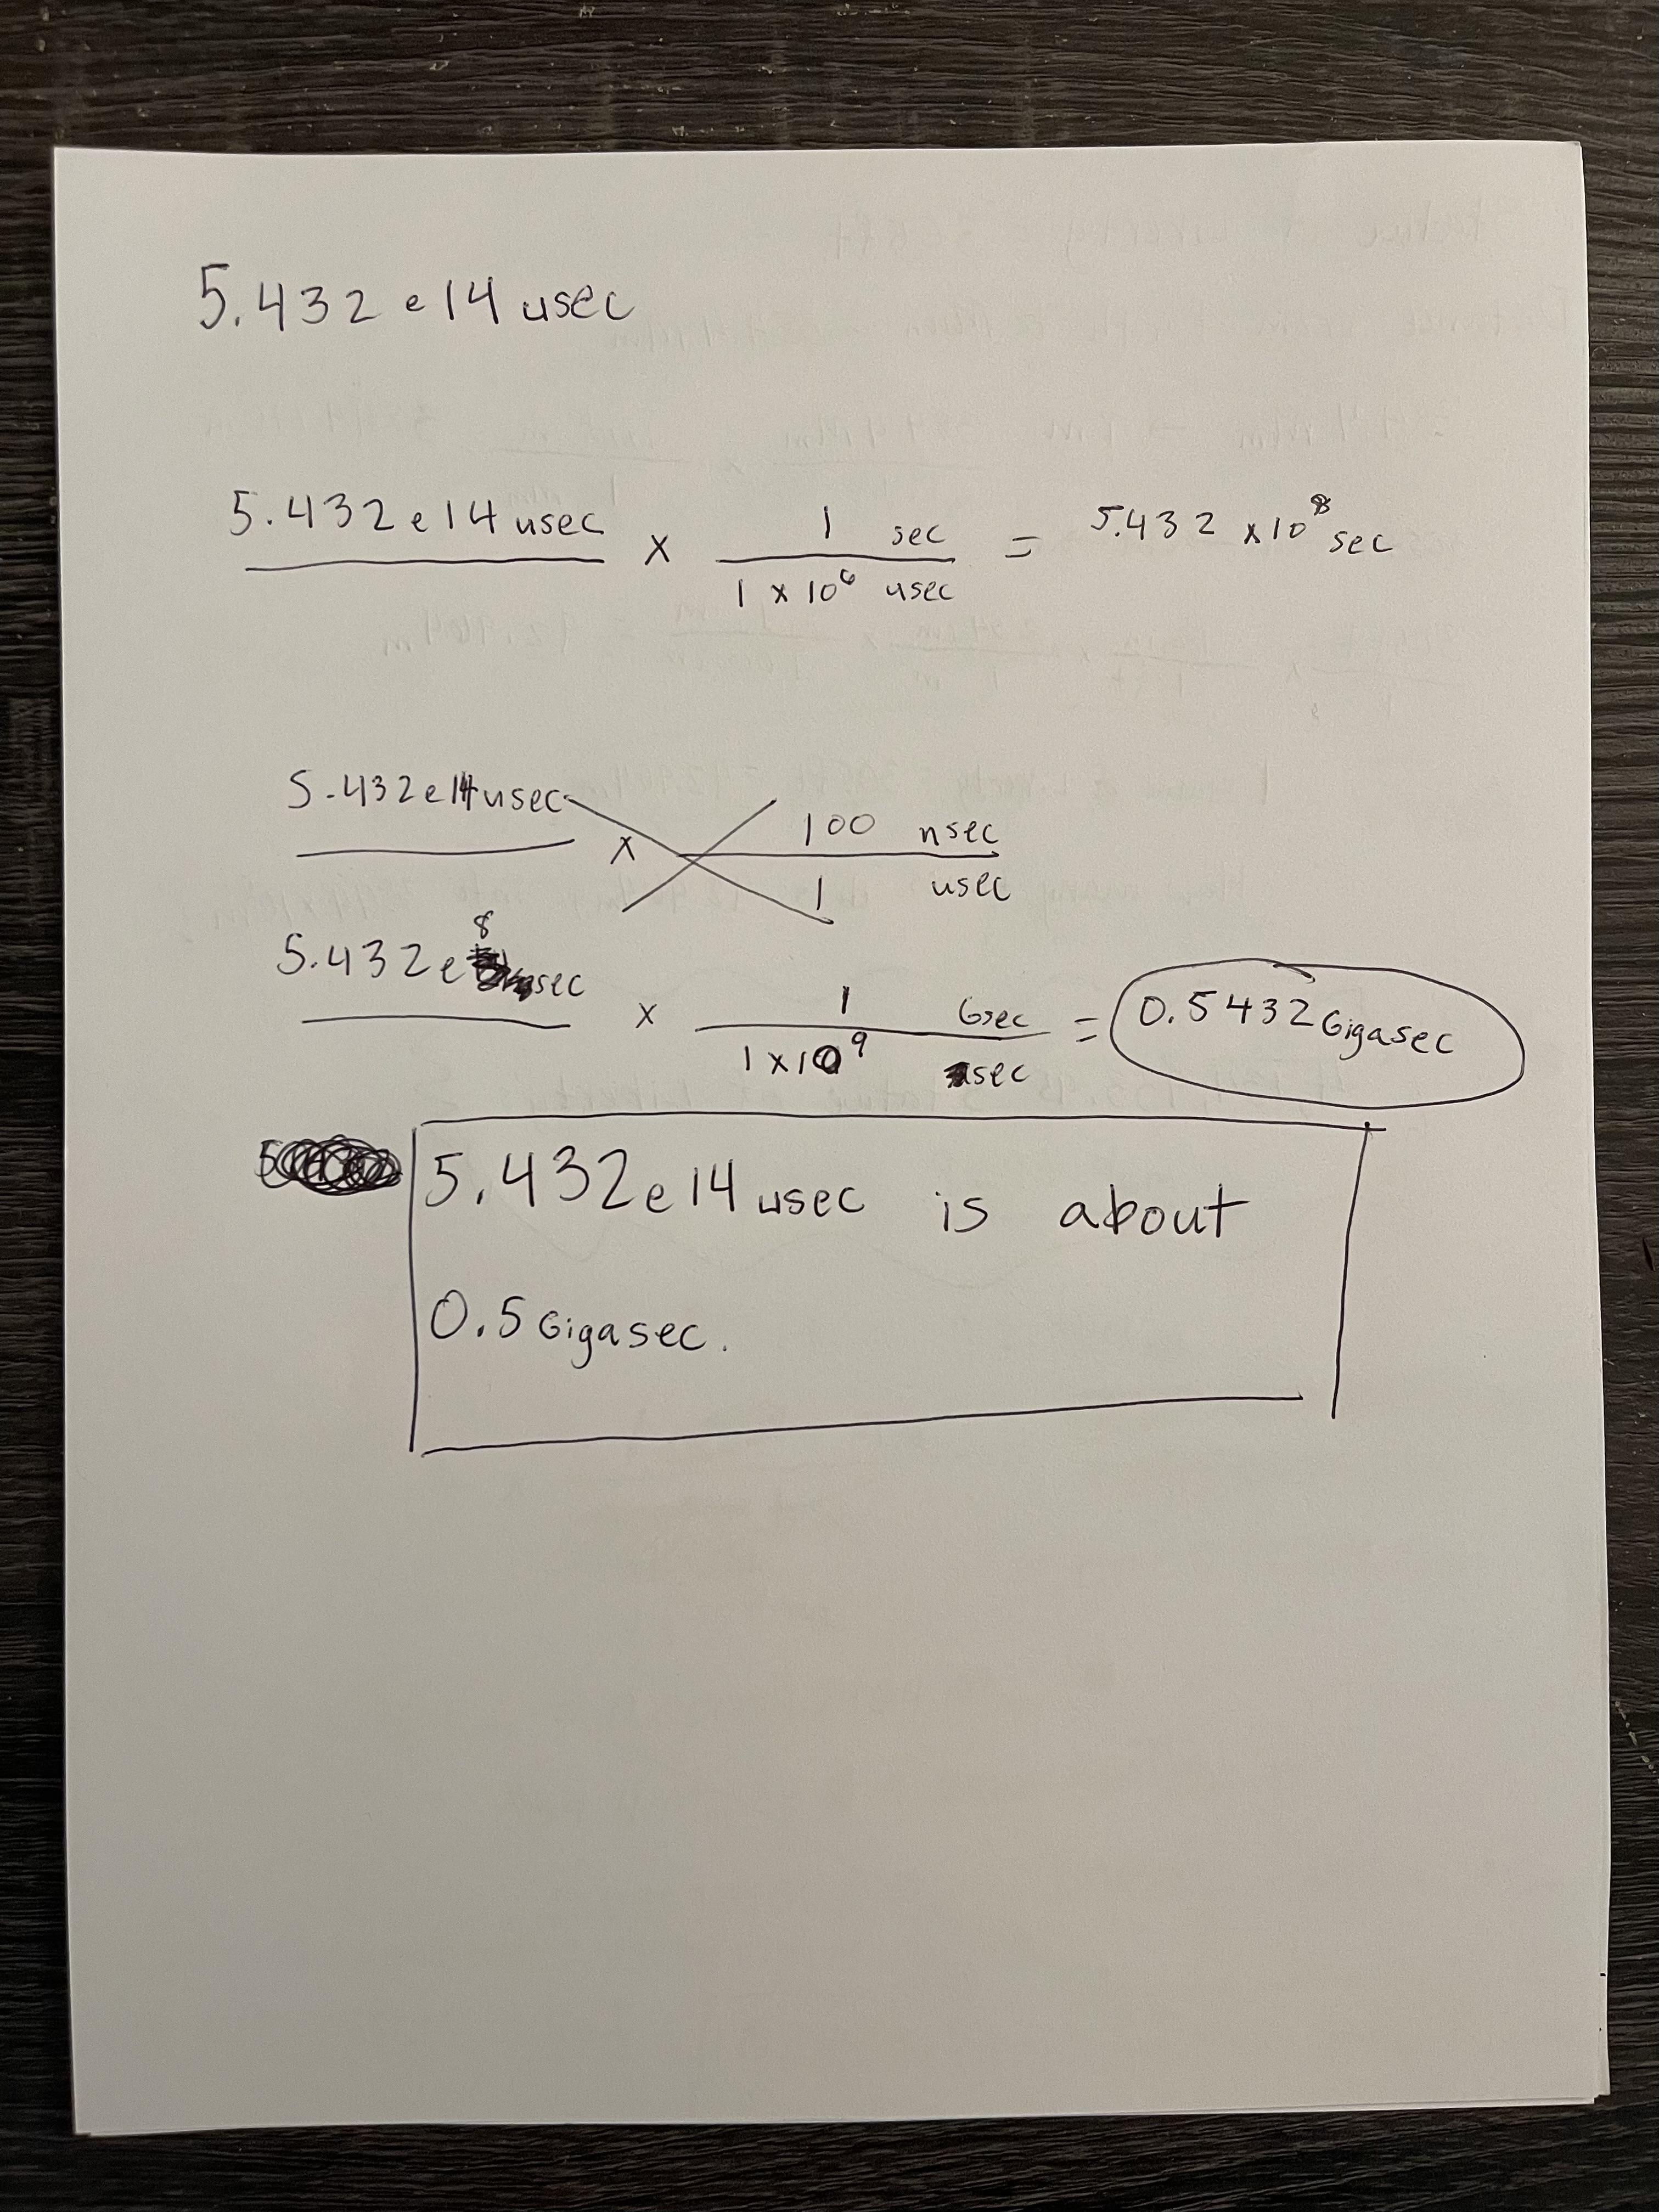 5.432 e 14 usec
5.432 e 14 usec × 1 sec / 1 × 10⁶ usec = 5.432 × 10⁸ sec
5.432 e 14 usec × 100 nsec / 1 usec
5.432 e 8 sec × 1 Gsec / 1 × 10⁹ sec = 0.5432 Gigasec
5.432 e 14 usec is about
0.5 Gigasec.